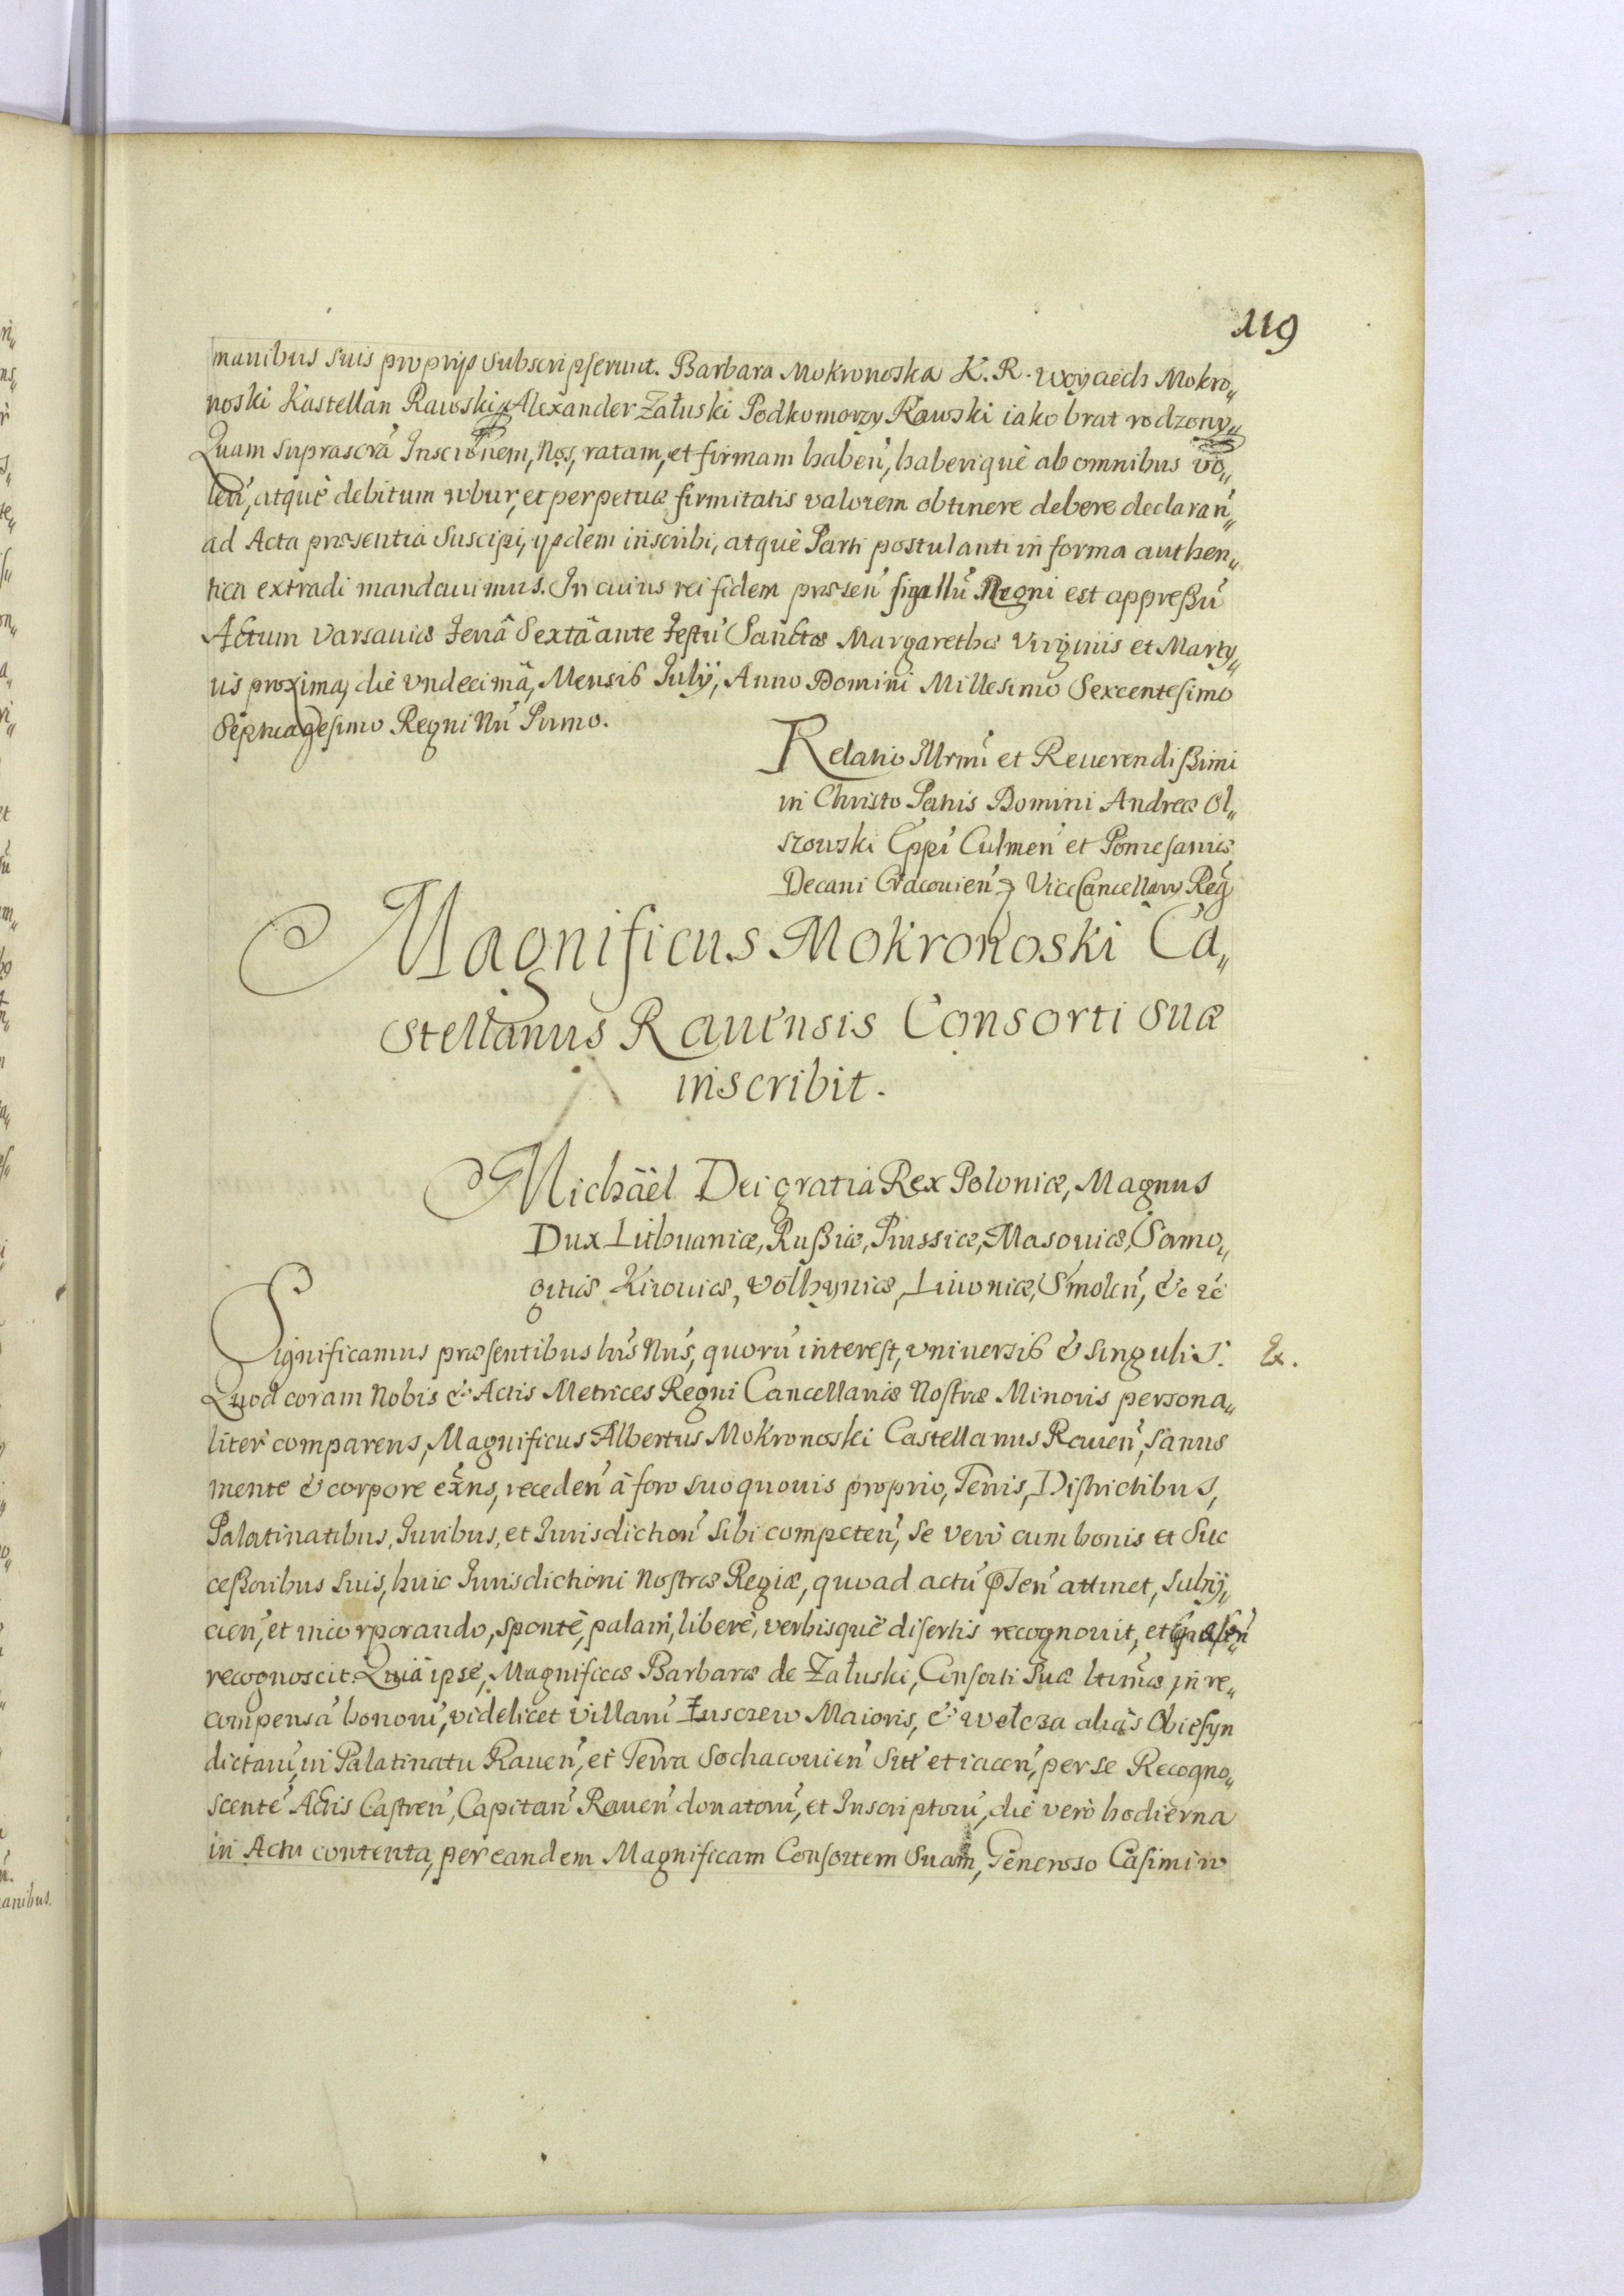 119
manibus suis proprijs subscripserunt. Barbara Mokronoska K. R. Woyciech Mokro„
noski Kastellan Rawski Alexander Załuski Podkomorzy Rawski iako brat rodzony„
Quam suprascrã Inscrip̃nem, Nos, ratam, et firmam habeñ, haberiquè ab omnibus vo„
leñ, atquè debitum robur, et perpetuæ firmitatis valorem obtinere debere declarañ„
ad Acta præsentia suscipi, ijsdem inscribi, atquè Parti postulanti in forma authen„
tica extradi mandauimus. In cuius rei fidem præseñ sigillũ Regni est appreßũ
Actum Varsauiæ Feriâ Sextâ ante Festũ Sanctæ Margarethæ Virginis et Marty„
ris proxima, die vndecimâ, Mensis Julij, Anno Domini Millesimo Sexcentesimo
Septuagesimo Regni Nri Primo.
Relatio Illrmi et Reuerendißimi
in Christo Patris Domini Andreæ Ol„
szowski Eppi Culmeñ et Pomesaniæ
Decani Cracouieñ Vice Cancellarij Regñ
Magnificus Mokronoski Ca„
stellanus Rauensis Consorti suæ
inscribit.
Michäel Dei gratia Rex Poloniæ, Magnus
Dux Lithuaniæ, Rußiæ, Prussiæ, Masouiæ, Samo„
gitiæ Kiiouiæ, Volhyniæ, Liuoniæ, Smoleñ, &c ꝛc
Significamus præsentibus lr̃is Nr̃is, quorũ interest, vniuersis & singulis. Ex.
Quod coram Nobis & Actis Metrices Regni Cancellariæ Nostræ Minoris persona„
liter comparens, Magnificus Albertus Mokronoski Castellanus Raueñ, sanus
mente & corpore ex̃ns, recedeñ â foro suo quouis proprio, Terris, Districtibus,
Palatinatibus, Iuribus, et Iurisdictioñ sibi competeñ, se verò cum bonis et Suc
ceßoribus suis, huic Iurisdictioni Nostræ Regiæ, quoad actũ p̃señ attinet, subij„
cieñ, et incorporando, spontè, palam, liberè, verbisquè disertis recognouit, et præseñ
recognoscit. Quia ipse, Magnificæ Barbaræ de Załuski, Consorti suæ ltimæ, in re„
compensâ bonorũ, videlicet Villarũ Juszew Maioris, & Wełcza aliàs Obiesyn
dictarũ, in Palatinatu Raueñ, et Terra Sochaczouieñ sitt̃ et iaceñ, per se Recogno„
scentẽ Actis Castreñ, Capitañ Raueñ donatorũ, et Inscriptorũ, die verò hodierna
in Actu contenta, per eandem Magnificam Consortem Suam, Generoso Casimiro